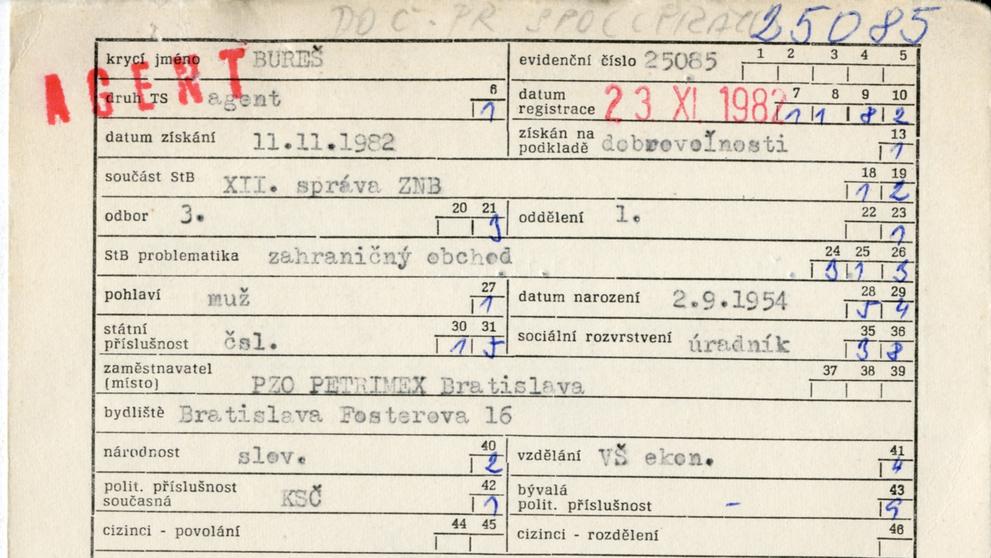 DOČ. PR SPOLUPRÁCU 25085
AGENT
krycí jméno BUREŠ evidenční číslo 25085 1 2 3 4 5
druh TS agent 6 1 datum registrace 23 XI. 1982 7 8 9 10 1 1 8 2
datum získání 11.11.1982 získán na podkladě dobrovoľnosti 13 1
součást StB XII. správa ZNB 18 19 1 2
odbor 3. 20 21 3 oddělení 1. 22 23 1
StB problematika zahraničný obchod 24 25 26 3 1 3
pohlaví muž 27 1 datum narození 2.9.1954 28 29 5 4
státní příslušnost čsl. 30 31 1 5 sociální rozvrstvení úradník 35 36 3 8
zaměstnavatel (místo) PZO PETRIMEX Bratislava 37 38 39
bydliště Bratislava Fosterova 16
národnost slov. 40 2 vzdělání VŠ ekon. 41 4
polit. příslušnost současná KSČ 42 1 bývalá polit. příslušnost - 43 9
cizinci - povolání 44 45 cizinci - rozdělení 46